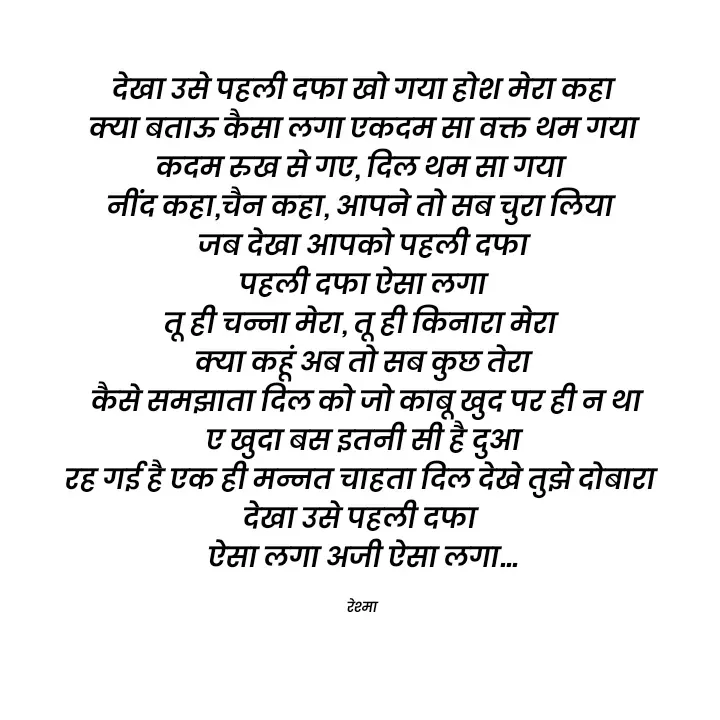 देखा उसे पहली दफा खो गया होश मेरा कहा
क्या बताऊ कैसा लगा एकदम सा वक्त थम गया
कदम रुख से गए, दिल थम सा गया
नींद कहा,चैन कहा, आपने तो सब चुरा लिया
जब देखा आपको पहली दफा
पहली दफा ऐसा लगा
तू ही चन्ना मेरा, तू ही किनारा मेरा
क्या कहूं अब तो सब कुछ तेरा
कैसे समझाता दिल को जो काबू खुद पर ही न था
ए खुदा बस इतनी सी है दुआ
रह गई है एक ही मन्नत चाहता दिल देखे तुझे दोबारा
देखा उसे पहली दफा
ऐसा लगा अजी ऐसा लगा...
रेश्मा